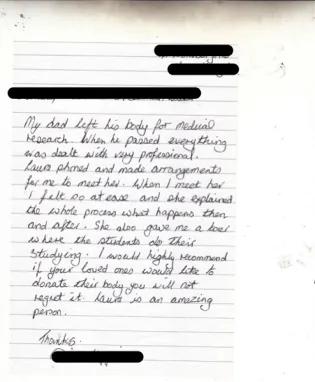 My dad left his body for medical
research. When he passed everything
was dealt with very professional.
Laura phoned and made arrangements
for me to meet her. When I meet her
I felt so at ease and she explained
the whole process what happens then
and after. She also gave me a tour
where the students do their
studying. I would highly recommend
if your loved ones would like to
donate their body you will not
regret it. Laura is an amazing
person.
Thanks.